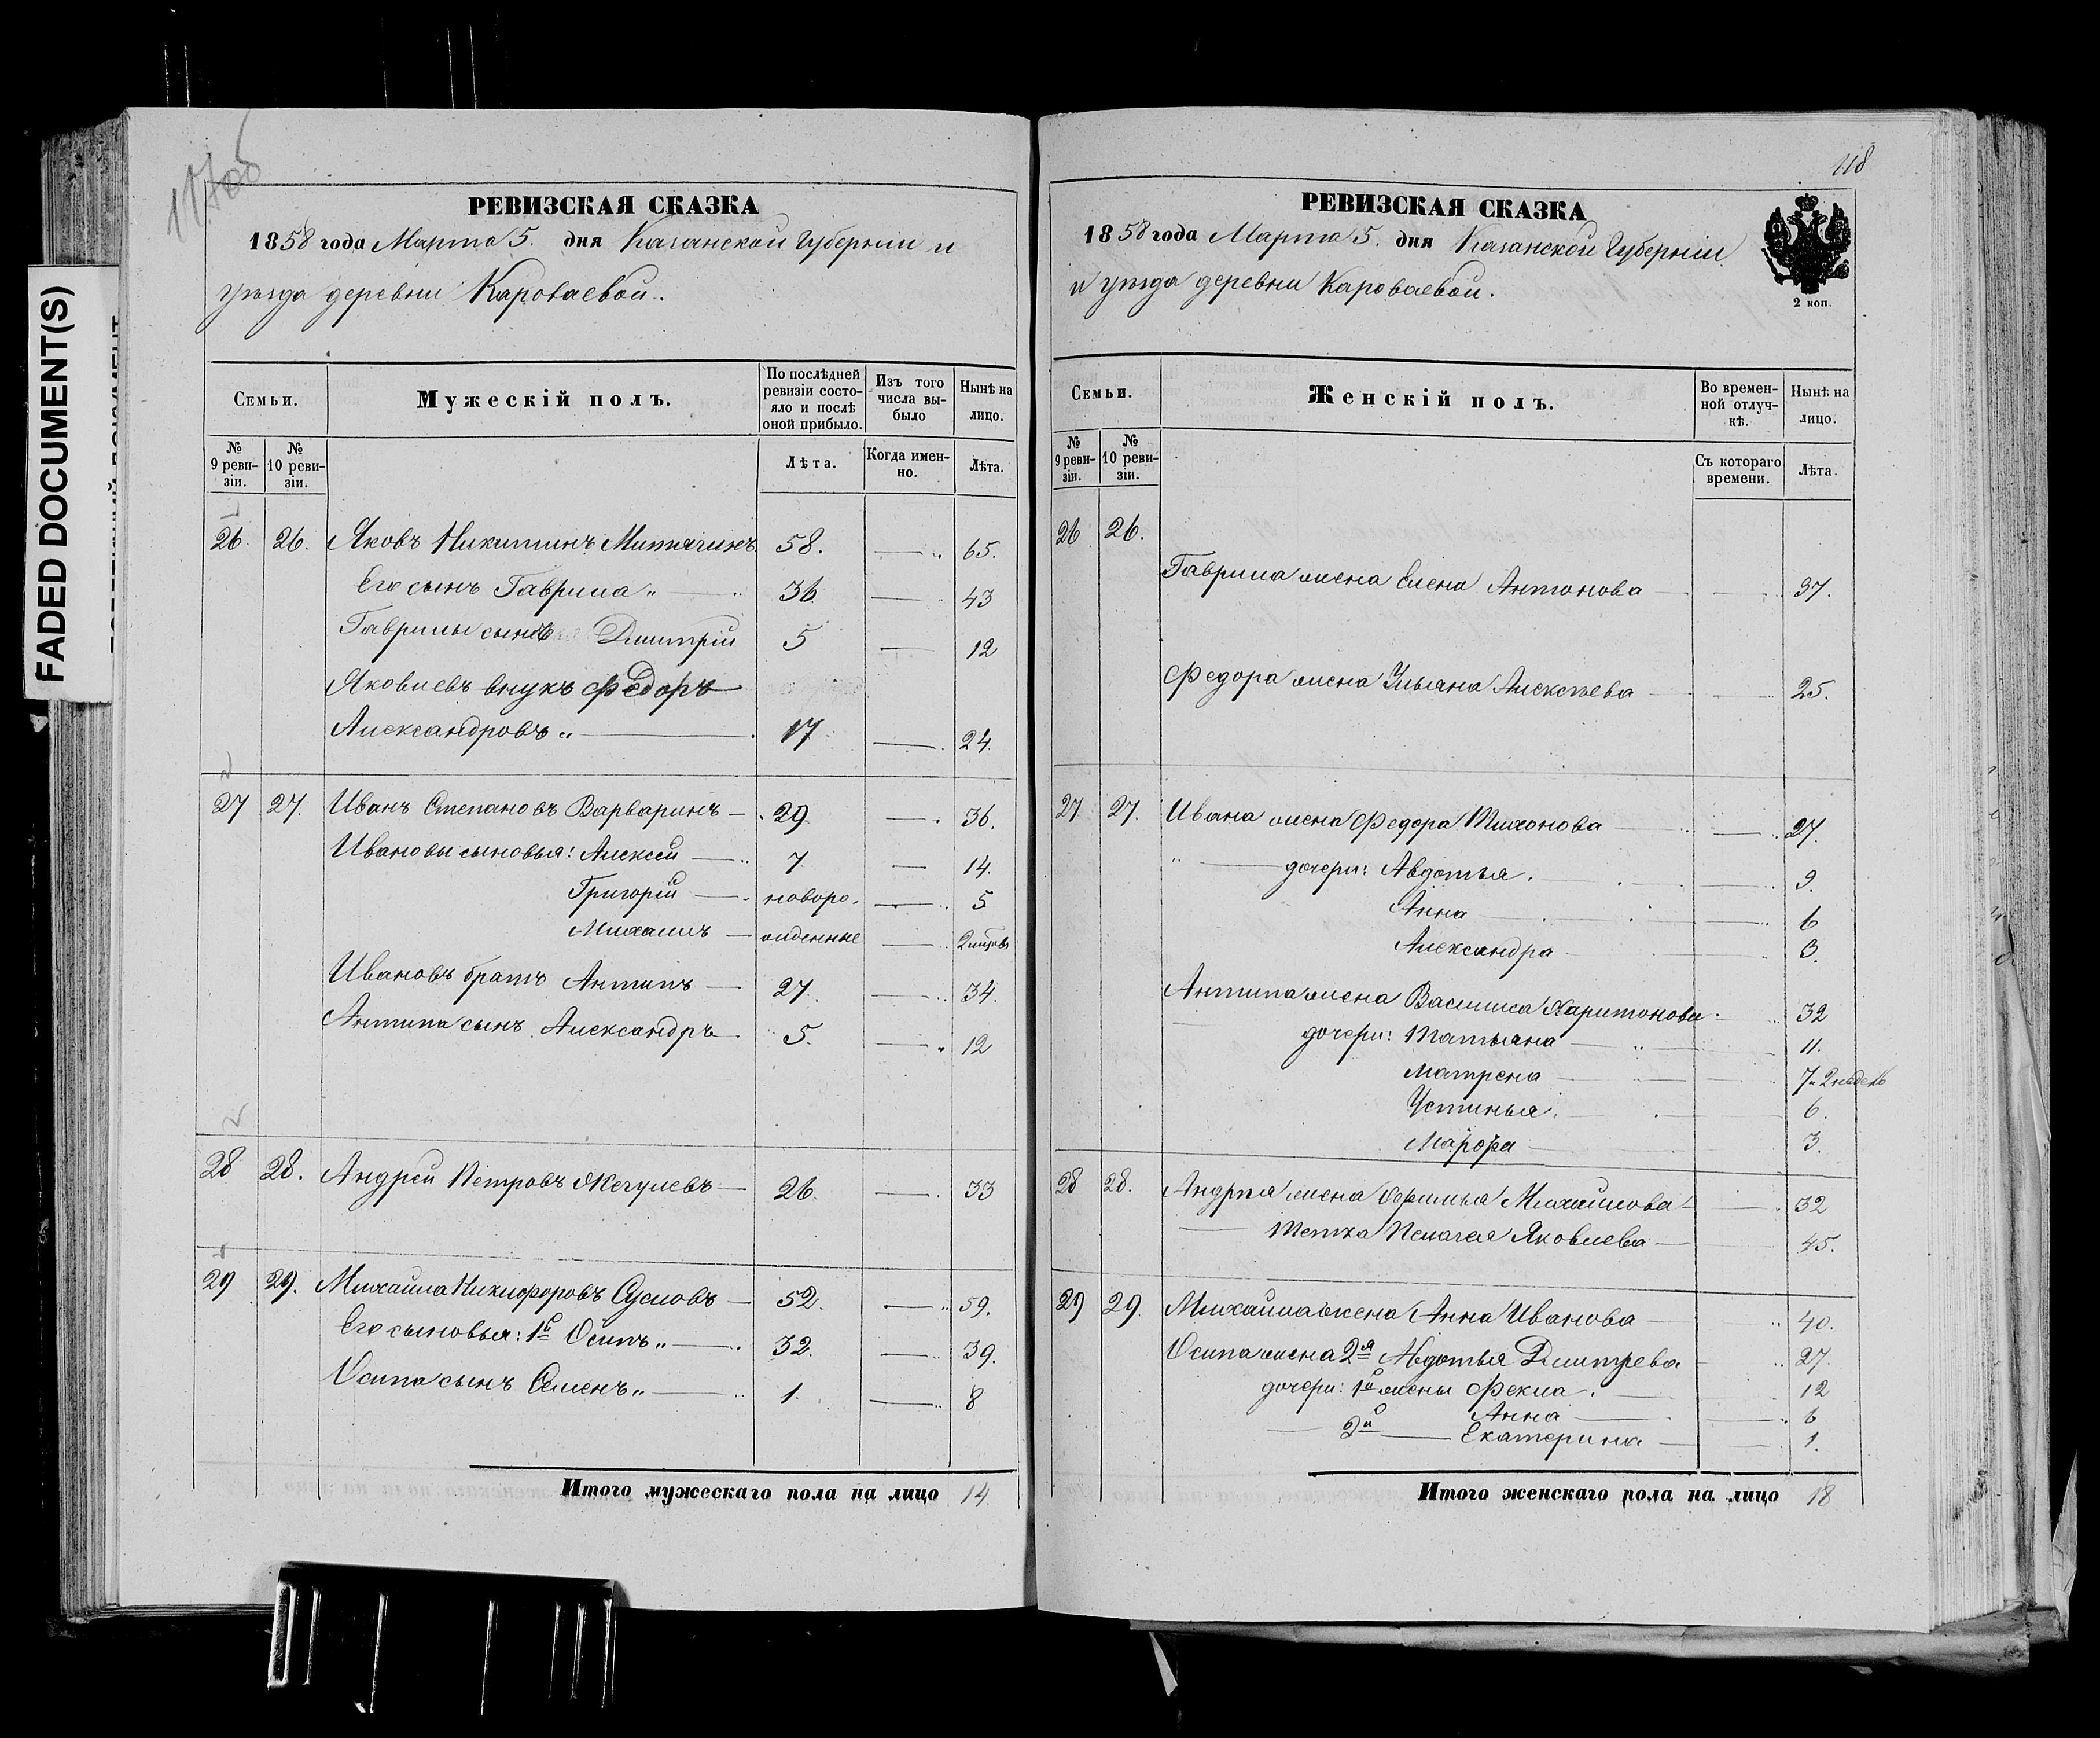 FADED DOCUMENT(S)
117об
РЕВИЗСКАЯ СКАЗКА
1858 года Марта 5. дня Казанской Губерніи и
уѣзда деревни Кароваевой.
Семьи.
Мужескій полъ.
По послѣдней ревизіи состояло и послѣ оной прибыло.
Изъ того числа выбыло
Нынѣ на лицо.
№ 9 ревизіи.
№ 10 ревизіи.
Лѣта.
Когда именно.
Лѣта.
26. 26. Яковъ Никитинъ 58. 65.
Его сынъ Гаврила 36. 43
Гаврилы сынъ Дмитрій 5 12
Яковлевъ внукъ Федоръ
Александровъ 17 24.
27 27. Иванъ Степановъ Варваринъ 29 36.
Ивановы сыновья: Алексей 7 14.
Григорій новоро- 5
Михаилъ жденные 2 мцовъ
Ивановъ братъ Антипъ 27. 34.
Антипа сынъ Александръ 5. 12
28 28. Андрей Петровъ 26. 33
29 29. Михаила Никифоровъ Сусловъ 52. 59.
Его сыновья: 1й Осипъ 32. 39.
Осипа сынъ Семенъ 1. 8
Итого мужескаго пола на лицо 14
118
РЕВИЗСКАЯ СКАЗКА
1858 года Марта 5. дня Казанской Губерніи
и уѣзда деревни Кароваевой.
2 коп.
Семьи.
Женскій полъ.
Во временной отлучкѣ.
Нынѣ на лицо.
№ 9 ревизіи.
№ 10 ревизіи.
Съ котораго времени.
Лѣта.
26 26.
Гаврила жена Елена Антонова 37.
Федора жена Ульяна Алексѣева 25.
27 27. Ивана жена Федора Тихонова 27.
дочери: Авдотья. 9.
Анна 6
Александра 3.
Антипа жена Василиса Харитонова 32
дочери: Татьяна 11.
Матрена 7 и 2 недель
Устинья. 6.
Марфа 3.
28 28. Андрея жена Офимья Михайлова 32
Тетка Пелагея Яковлева 45.
29 29. Михайла жена Анна Иванова 40.
Осипа жена 2я Авдотья Дмитрева 27.
дочери: 1й жены Фекла. 12
Анна 6
2й Екатерина 1.
Итого женскаго пола на лицо 18